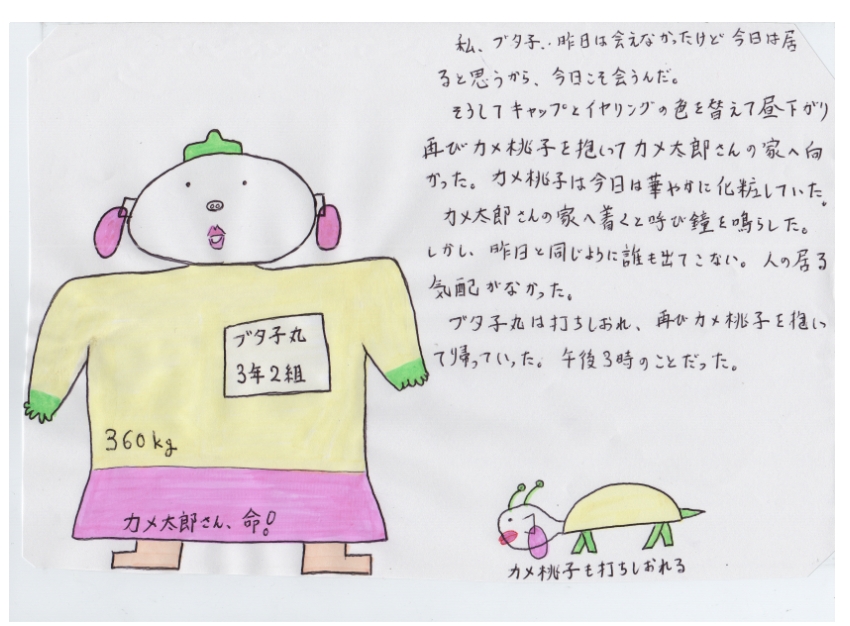 私、ブタ子‥昨日は会えなかったけど今日は居
ると思うから、今日こそ会うんだ。
そうしてキャップとイヤリングの色を替えて昼下がり
再びカメ桃子を抱いてカメ太郎さんの家へ向
かった。カメ桃子は今日は華やかに化粧していた。
カメ太郎さんの家へ着くと呼び鐘を鳴らした。
しかし、昨日と同じように誰も出てこない。人の居る
気配がなかった。
ブタ子丸は打ちしおれ、再びカメ桃子を抱い
て帰っていった。午後3時のことだった。
ブタ子丸
3年2組
360kg
カメ太郎さん、命!
カメ桃子も打ちしおれる